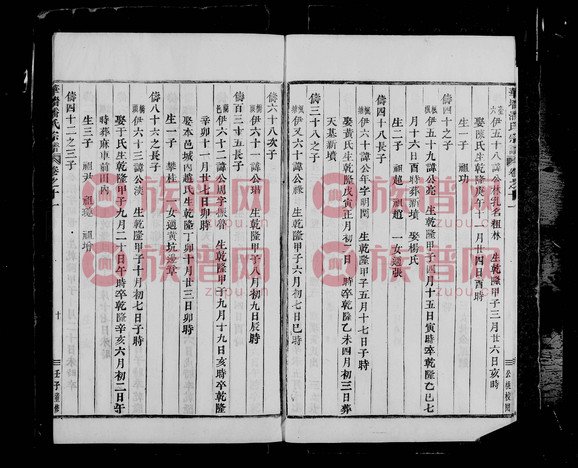 伊五十八諱公林乳名租林 生乾隆甲子三月廿六日亥時
娶陳氏生乾隆庚午十一月十四日酉時
生一子 祖功
儔四十之子
伊五十九諱公亮 生乾隆甲子四月十五日寅時卒乾隆乙巳七
月十六日酉時葬新墳 娶楊氏
生二子 祖超 祖趙 一女適張
儔四十八長子
伊六十諱公年字明閏 生乾隆甲子五月十七日子時
儔三十八之子
伊又六十諱公綠 生乾隆甲子六月初七日巳時
娶黃氏生乾隆戊寅正月初一日 時卒乾隆乙未四月初三日葬
天基新墳
儔六十八次子
伊六十一諱公瑞 生乾隆甲子八月初九日辰時
儔百三十五長子
伊六十二諱公周字振聲 生乾隆甲子九月十九日亥時卒乾隆
辛卯十一月廿七日卯時
娶本邑城內趙氏生乾隆丁卯十月廿三日卯時
生一子 樊桂 一女適黃坑邊章
儔八十六之長子
伊六十三諱公漢 生乾隆甲子十月初七日子時
娶于氏生乾隆甲子九月二十日午時卒乾隆辛亥六月初二日午
時葬麻車前山內
生三子 祖尹 祖璦 祖增
儔四十二之三子
十
壬子重修
族譜网
zupu.cn